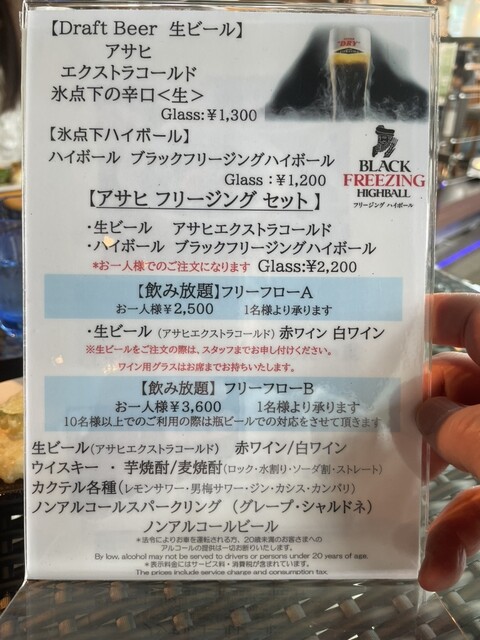 【Draft Beer 生ビール】
アサヒ
エクストラコールド
氷点下の辛口<生>
Glass:¥1,300
【氷点下ハイボール】
ハイボール ブラックフリージングハイボール
Glass：¥1,200
BLACK
FREEZING
HIGHBALL
フリージング ハイボール
【アサヒ フリージング セット】
・生ビール アサヒエクストラコールド
・ハイボール ブラックフリージングハイボール
*お一人様でのご注文になります Glass:¥2,200
【飲み放題】フリーフローA
お一人様¥2,500 1名様より承ります
・生ビール（アサヒエクストラコールド）赤ワイン 白ワイン
※生ビールをご注文の際は、スタッフまでお申し付けください。
ワイン用グラスはお席までお持ちいたします。
【飲み放題】 フリーフローB
お一人様¥3,600 1名様より承ります
10名様以上でのご利用の際は瓶ビールでの対応をさせて頂きます
生ビール（アサヒエクストラコールド） 赤ワイン/白ワイン
ウイスキー ・ 芋焼酎/麦焼酎（ロック・水割り・ソーダ割・ストレート）
カクテル各種（レモンサワー・男梅サワー・ジン・カシス・カンパリ）
ノンアルコールスパークリング （グレープ・シャルドネ）
ノンアルコールビール
*法令によりお車を運転される方、20歳未満のお客さまへの
アルコールの提供は一切お断りいたします。
By low, alcohol may not be served to drivers or persons under 20 years of age.
*表示料金にはサービス料・消費税が含まれています。
The prices include service charge and consumption tax.